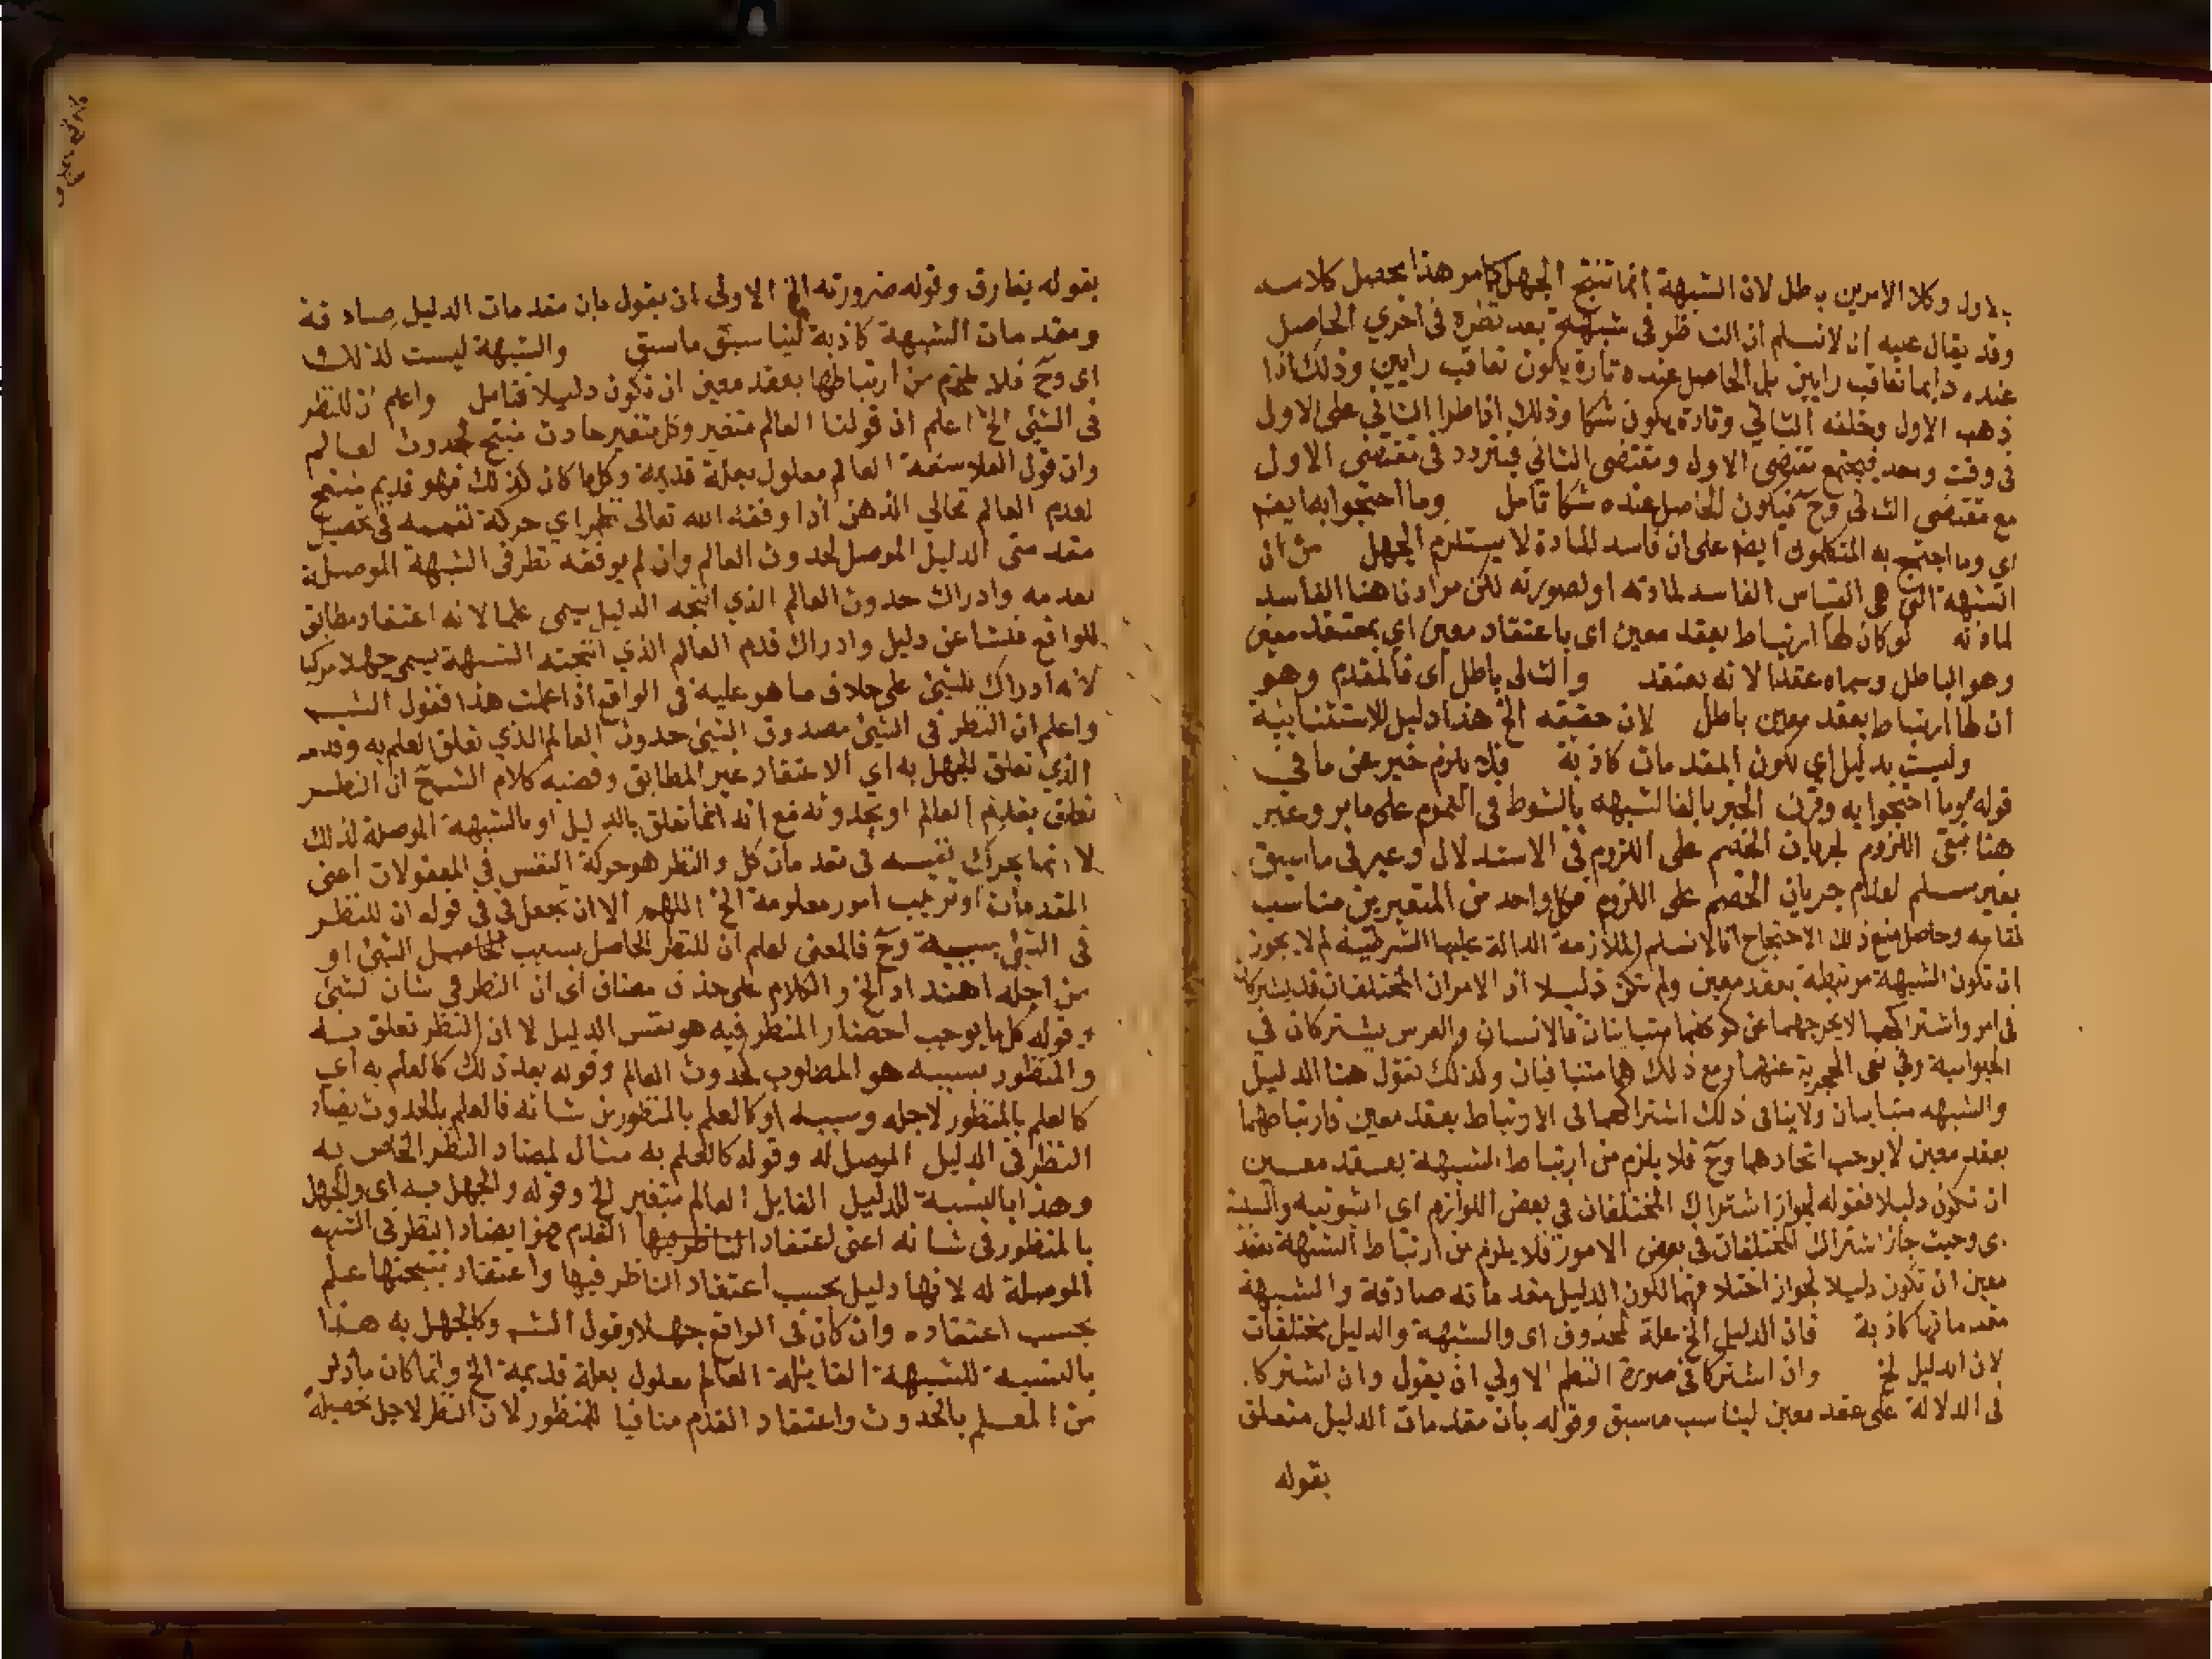 بالاول وكلا الامرين باطل لان الشبهة انما تنتج الجهل كما مر هذا محصل كلامه
وقد يقال عليه ان لا نسلم ان الناظر فى شبهة بعد نظره فى اخري الحاصل
عنده دايما تعاقب رايين بل الحاصل عنده تارة يكون تعاقب رايين وذلك اذا
ذهب الاول وخلفه الثاني وتارة يكون شكا وذلك اذا طرا الثاني على الاول
فى وقت وحد فيجتمع مقتضى الاول ومقتضى الثاني فيتردد فى مقتضى الاول
مع مقتضى الثانى وحٓ فيكون الحاصل عنده شكا تامل وما احتجوا به ايضم
اي وما احتج به المتكلمون ايضم على ان فاسد المادة لا يستلزم الجهل من ان
الشبهة التى هى القياس الفاسد لمادته او لصورته لكن مرادنا هنا الفاسد
لمادته لو كان لها ارتباط بعقد معين اى باعتقاد معين اي بمعتقد معين
وهو الباطل وسماه عقدا لانه يعتقد والتالى باطل اى فالمقدم وهو
ان لها ارتباط بعقد معين باطل لان حقيقه الخ هذا دليل للاستثنايية
وليست بدليل اي لكون المقدمات كاذبة فلا يلزم خبر عن ما في
قوله وما احتجوا به وقرن الخبر بالفا لشبهه بالشرط فى العموم على ما مر وعبر
هنا بنفى اللزوم لجريان الخصم على اللزوم فى الاستدلال وعبر فى ما سبق
بغير مسلم لعدم جريان الخصم على اللزوم فكل واحد من التعبيرين مناسب
لمقامه وحاصل منع ذلك الاحتجاج انا لا نسلم الملازمة الدالة عليها الشرطية لم لا يجوز
ان تكون الشبهة مرتبطة بعقد معين ولم تكن دليلا اذ الامران المختلفان قد يشتركان
فى امر واشتراكهما لا يخرجهما عن كونهما متباينان فالانسان والفرس يشتركان في
الحيوانية وفي نفى الحجرية عنهما ومع ذلك هما متنافيان وكذلك نقول هنا الدليل
والشبهه متباينان ولا ينافى ذلك اشتراكهما فى الارتباط بعقد معين فارتباطهما
بعقد معين لا يوجب اتحادهما وحٓ فلا يلزم من ارتباط الشبهة بعقد معين
ان تكون دليلا فقوله لجواز اشتراك المختلفان في بعض اللوازم اى الثبوتيه والسلبية
اى وحيث جاز اشتراك المختلفان فى بعض الامور فلا يلزم من ارتباط الشبهة بعقد
معين ان تكون دليلا لجواز اختلافهما لكون الدليل مقدماته صادقة والشبهة
مقدماتها كاذبة فان الدليل الخ علة لمحذوف اى والشبهة والدليل مختلفان
لان الدليل الخ وان اشتركا فى صورة النظم الاولي ان يقول وان اشتركا
فى الدلالة على عقد معين ليناسب ما سبق وقوله بان مقدمات الدليل متعلق
بقوله
بقوله يفارق وقوله ضرورته الخ الاولى ان يقول بان مقدمات الدليل صادقة
ومقدمات الشبهة كاذبة ليناسب ما سبق والشبهة ليست لذلك
اى وحٓ فلا يلزم من ارتباطها بعقد معين ان تكون دليلا فتامل واعلم ان للنظر
فى الشئ الخ اعلم ان قولنا العالم متغير وكل متغير حادث منتج لحدوث العالم
وان قول الفلاسفة العالم معلول بعلة قديمة وكل ما كان كذلك فهو قديم منتج
لقدم العالم الذهن اذا وفقه الله تعالى نظر اي حركة نفسه فى تحصيل
مقدمتى الدليل الموصل لحدوث العالم وان لم يوفقه نظر فى الشبهة الموصلة
لقدمه وادراك حدوث العالم الذي انتجه الدليل يسمى علما لانه اعتقاد مطابق
للواقع فنشا عن دليل وادراك قدم العالم الذي انتجته الشبهة يسمى جهلا مركبا
لانه ادراك للشئ على خلاف ما هو عليه فى الواقع اذا علمت هذا فقول الشم
واعلم ان النظر فى الشئ مصدوق الشئ حدوث العالم الذي تعلق العلم به وقدمه
الذي تعلق الجهل به اي الاعتقاد غير المطابق وقضيه كلام الشيخ ان النظر
تعلق بقدم العالم او بحدوثه مع انه انما تعلق بالدليل او بالشبهة الموصلة لذلك
لا انما يحرك نفسه فى مقدمات كل والنظر هو حركة النفس في المعقولات اعنى
المقدمات او ترتيب امور معلومة الخ اللهم الا ان تجعل فى فى قوله ان للنظر
فى الشئ سببية وحٓ فالمعنى اعلم ان للنظر الحاصل بسبب الشئ او
من اجله اضداد الخ والكلام على حذف مضاف اى ان النظر في شان الشئ
وقوله كل ما يوجب احضار المنظر فيه هو نفس الدليل لا ان النظر تعلق به
والمنظور بسببه هو المطلوب لحدوث العالم وقوله بعد ذلك كالعلم به اى
كالعلم بالمنظور لاجله وسببه او كالعلم بالمنظور من شانه فالعلم بالحدوث يضاد
النظر فى الدليل الموصل له وقوله كالعلم به مثال لمضاد النظر الخاص به
وهذا بالنسبة للدليل القايل العالم متغير الخ وقوله والجهل به اى والجهل
بالمنظور فى شانه اعنى اعتقاد القدم فهو ايضاد النظر فى الشبهه
الموصلة له لانها دليل بحسب اعتقاد الناظر فيها واعتقاد نتيجتها علم
بحسب اعتقاده وان كان فى الواقع جهلا وقول الشم وكالجهل به هذا
بالنسبة للشبهة القايلة العالم معلول بعلة قديمة الخ وانما كان ما ذكر
من العلم بالحدوث واعتقاد القدم منافيا للمنظور لان النظر لاجل تحصيله